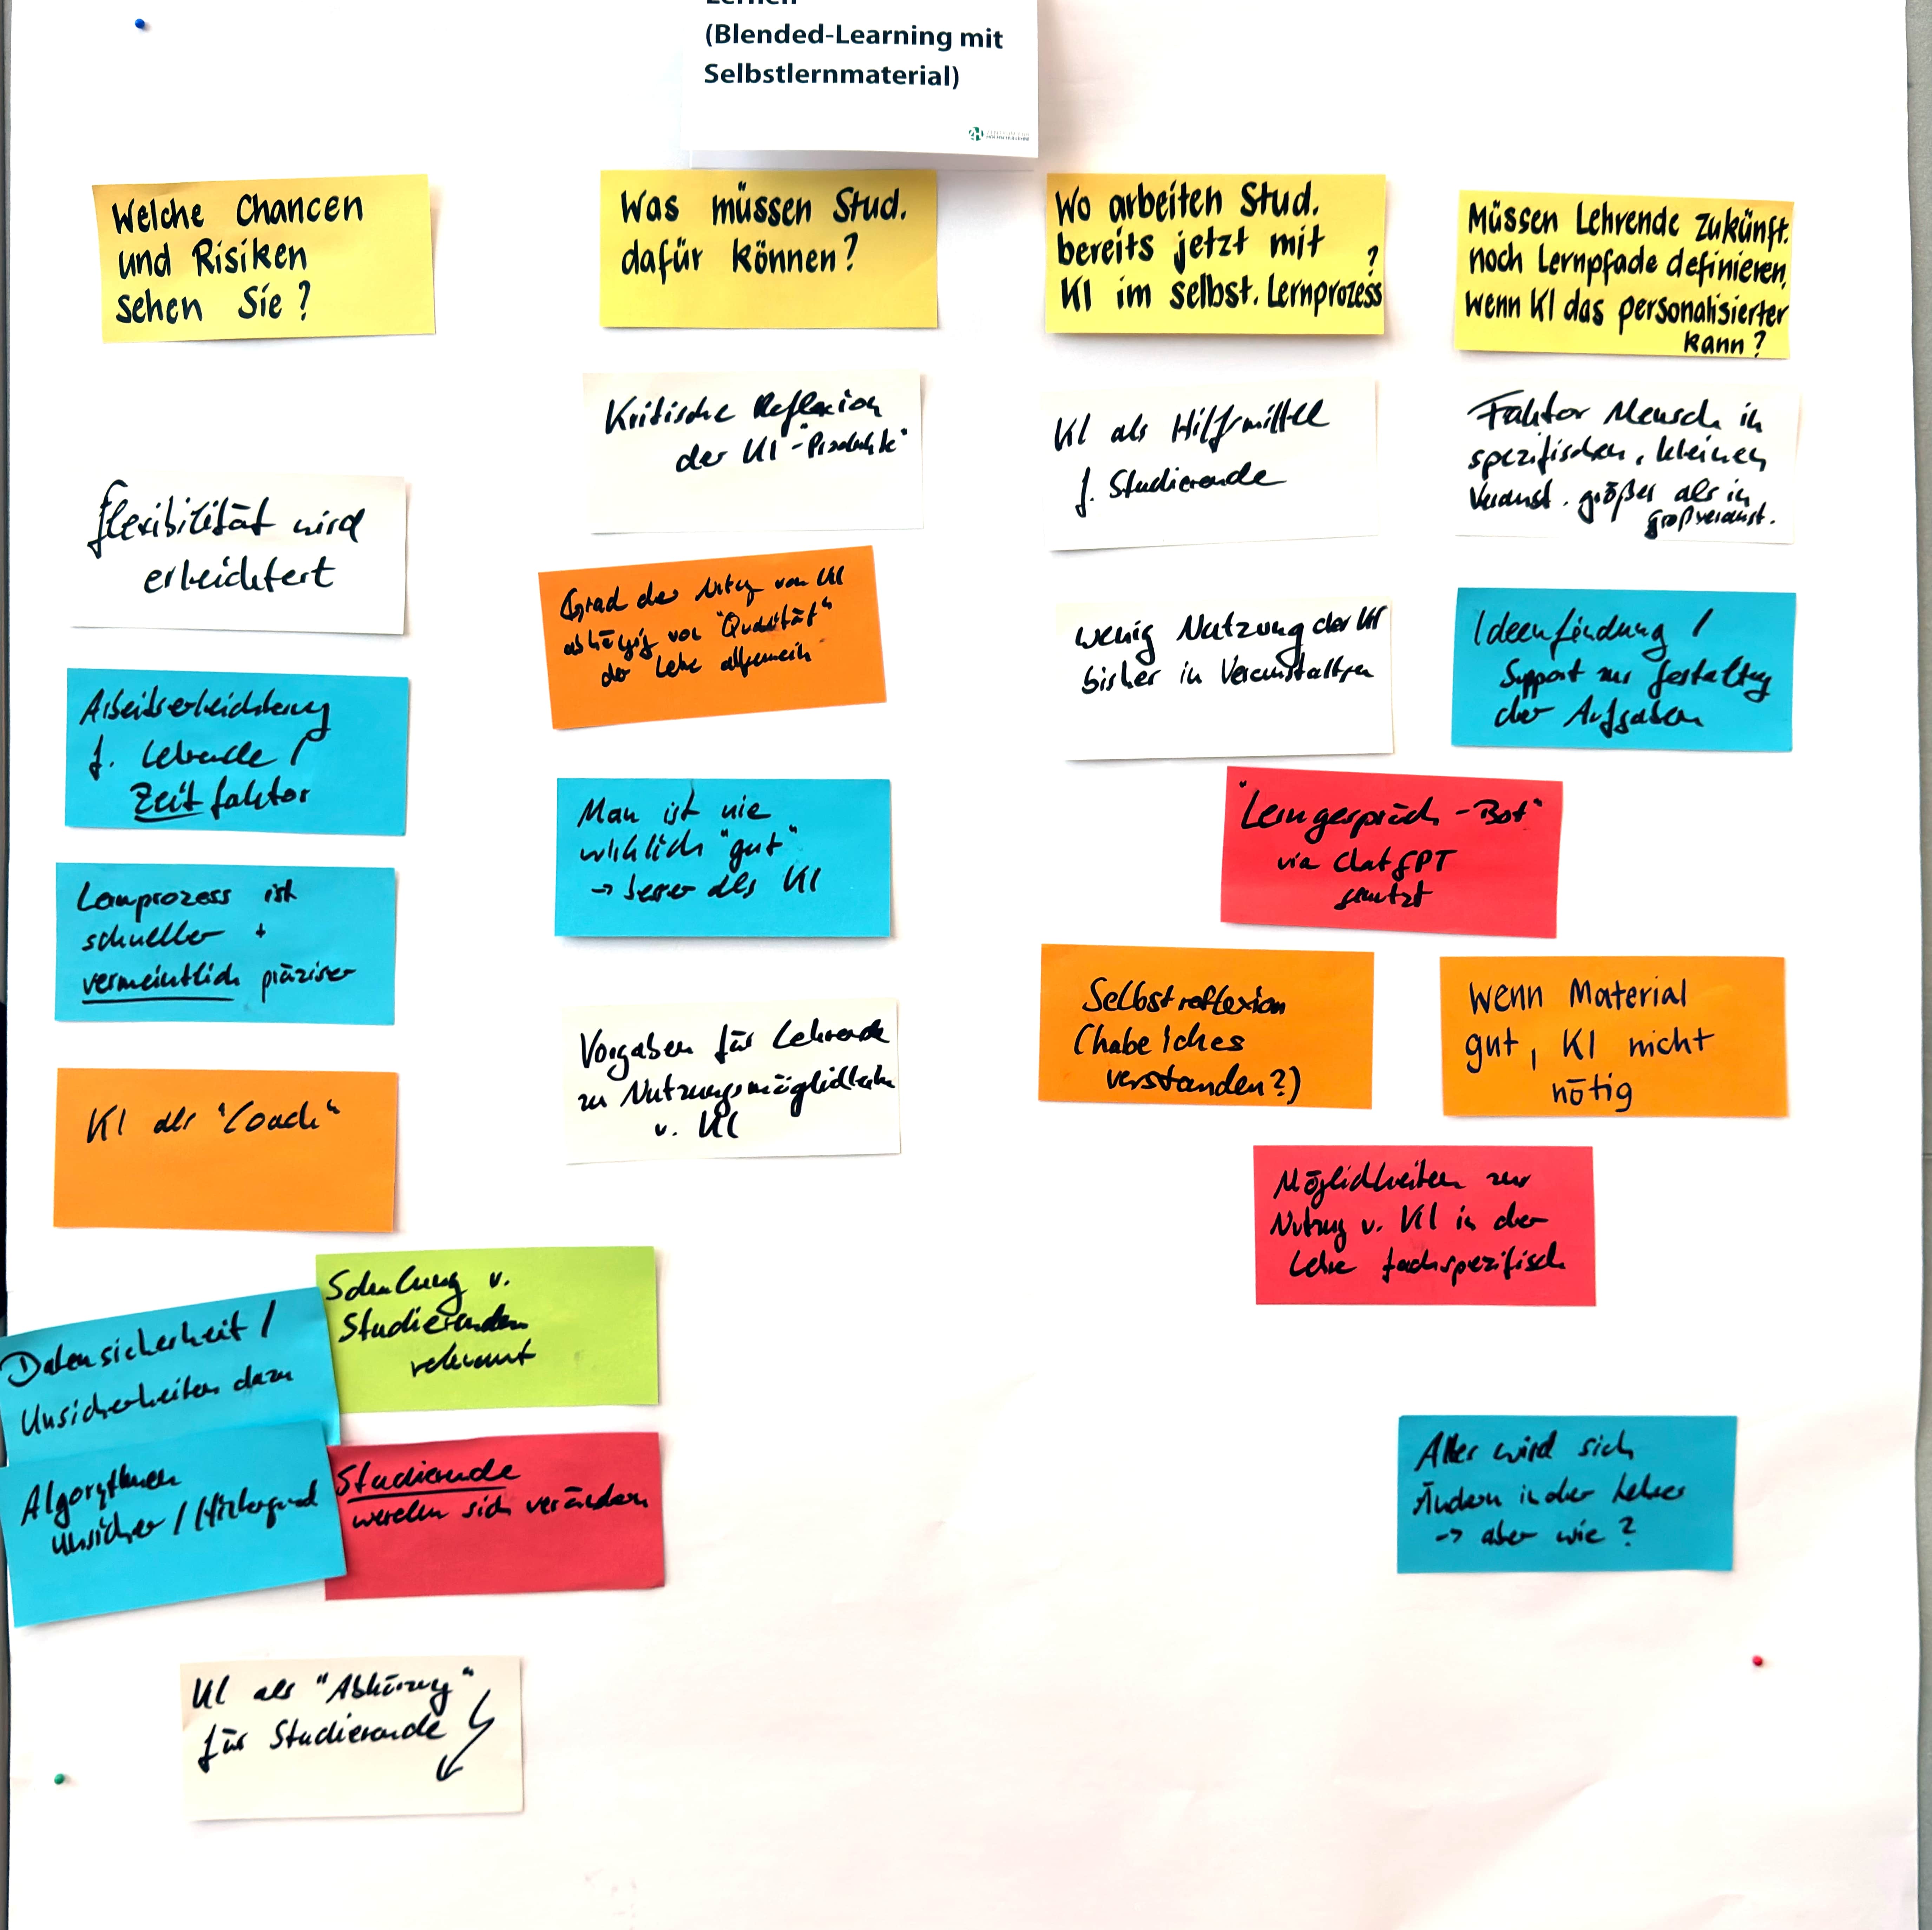 Lernen
(Blended-Learning mit
Selbstlernmaterial)
ZENTRUM FÜR
HOCHSCHULLEHRE
Welche Chancen
und Risiken
sehen Sie?
Flexibilität wird
erleichtert
Arbeitserleichterung
f. Lehrende /
Zeitfaktor
Lernprozess ist
schneller +
vermeintlich präziser
KI als "Coach"
Datensicherheit /
Unsicherheiten dazu
Algorythmen
unsicher / Hintergrund
Schulung v.
Studierenden
relevant
Studierende
werden sich verändern
KI als "Abkürzung"
für Studierende
Was müssen Stud.
dafür können?
Kritische Reflexion
der KI-"Produkte"
Grad der Nutzg von KI
abhängig von "Qualität"
der Lehre allgemein
Man ist nie
wirklich "gut"
→ besser als KI
Vorgaben für Lehrende
zu Nutzungsmöglichkeiten
v. KI
Wo arbeiten Stud.
bereits jetzt mit
KI im selbst. Lernprozess?
KI als Hilfsmittel
f. Studierende
wenig Nutzung der KI
bisher in Veranstaltgen
"Lerngespräch-Bot"
via ChatGPT
genutzt
Selbstreflexion
(habe ich es
verstanden?)
Möglichkeiten zur
Nutzug v. KI in der
Lehre fachspezifisch
Müssen Lehrende zukünft.
noch Lernpfade definieren,
wenn KI das personalisierter
kann?
Faktor Mensch in
spezifischen, kleinen
Veranst. größer als in
Großveranst.
Ideenfindung /
Support zur Gestaltg
der Aufgaben
Wenn Material
gut, KI nicht
nötig
Alles wird sich
ändern in der Lehre
→ aber wie?